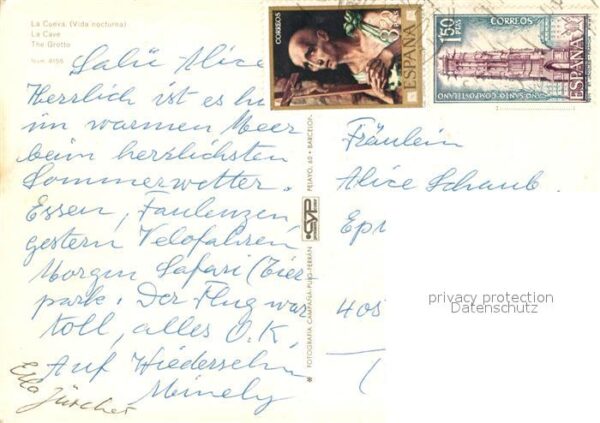 La Cueva. (Vida nocturna)
La Cave
The Grotto
Num. 4156
Salü Alice
Herrlich ist es hi
im warmen Meer
beim herrlichsten
Sommerwetter.
Essen, Faulenzen
gestern Velofahren
Morgen Safari (Tier
park. Der Flug war
toll, alles O.K.
Auf Wiedersehn
Meinely
CORREOS
ESPAÑA
1'50 PTAS
CORREOS
ESPAÑA
AÑO SANTO COMPOSTELANO
FOTOGRAFIA CAMPAÑA-PUIG-FERRAN
CYP
PELAYO, 60 • BARCELON
Fräulein
Alice Schaub
Ep
405
privacy protection
Datenschutz